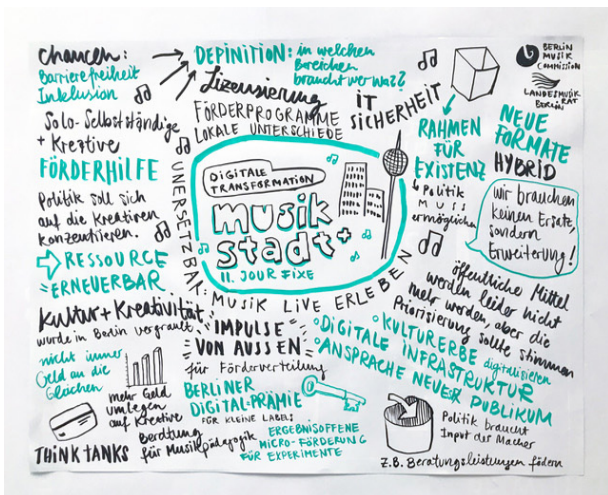 Chancen:
Barrierefreiheit
Inklusion
Solo-Selbstständige
+ Kreative
FÖRDERHILFE
Politik soll sich
auf die Kreativen
konzentrieren.
RESSOURCE
ERNEUERBAR
Kultur + Kreativität
wurde in Berlin vergrault
nicht immer
Geld an die
Gleichen
mehr Geld
umlegen
auf Kreative
THINK TANKS
Beratung
für Musikpädagogik
DEFINITION: in welchen
Bereichen
braucht wer was?
Lizensierung
FÖRDERPROGRAMME
LOKALE UNTERSCHIEDE
IT
SICHERHEIT
DIGITALE
TRANSFORMATION
musik
stadt+
11. JOUR FIXE
UNERSETZBAR: MUSIK LIVE ERLEBEN
IMPULSE
VON AUSSEN
für Förderverteilung
BERLINER
DIGITAL-PRÄMIE
FÜR KLEINE LABELS
ERGEBNISOFFENE
MICRO-FÖRDERUNG
FÜR EXPERIMENTE
RAHMEN
FÜR
EXISTENZ
Politik
MUSS
ermöglichen
BERLIN
MUSIK
COMMISSION
LANDESMUSIK
RAT
BERLIN
NEUE
FORMATE
HYBRID
wir brauchen
keinen Ersatz,
sondern
Erweiterung!
öffentliche Mittel
werden leider nicht
mehr werden, aber die
Priorisierung sollte stimmen
KULTURERBE digitalisieren
DIGITALE INFRASTRUKTUR
ANSPRACHE NEUER PUBLIKUM
Politik braucht
Input der Macher
z.B. Beratungsleistungen fördern